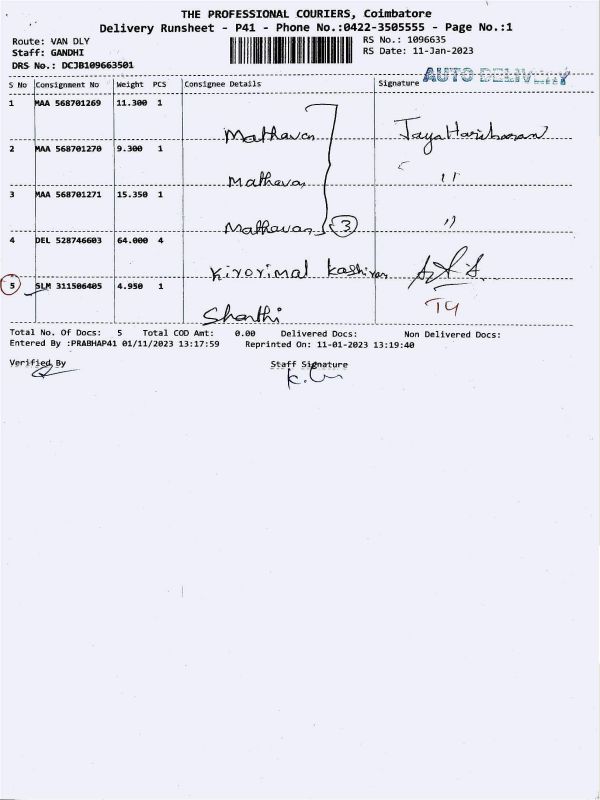 THE PROFESSIONAL COURIERS, Coimbatore
Delivery Runsheet - P41 - Phone No.:0422-3505555 - Page No.:1
Route: VAN DLY RS No.: 1096635
Staff: GANDHI RS Date: 11-Jan-2023
DRS No.: DCJB109663501
AUTO DELIVERY
S No Consignment No Weight PCS Consignee Details Signature
1 MAA 568701269 11.300 1
Mathavan JayaHariharan
2 MAA 568701270 9.300 1
Mathavan "
3 MAA 568701271 15.350 1
Mathavan 3 "
4 DEL 528746603 64.000 4
Kirorimal
5 SLM 311506405 4.950 1
Shanthi
Total No. Of Docs: 5 Total COD Amt: 0.00 Delivered Docs: Non Delivered Docs:
Entered By :PRABHAP41 01/11/2023 13:17:59 Reprinted On: 11-01-2023 13:19:40
Verified By Staff Signature